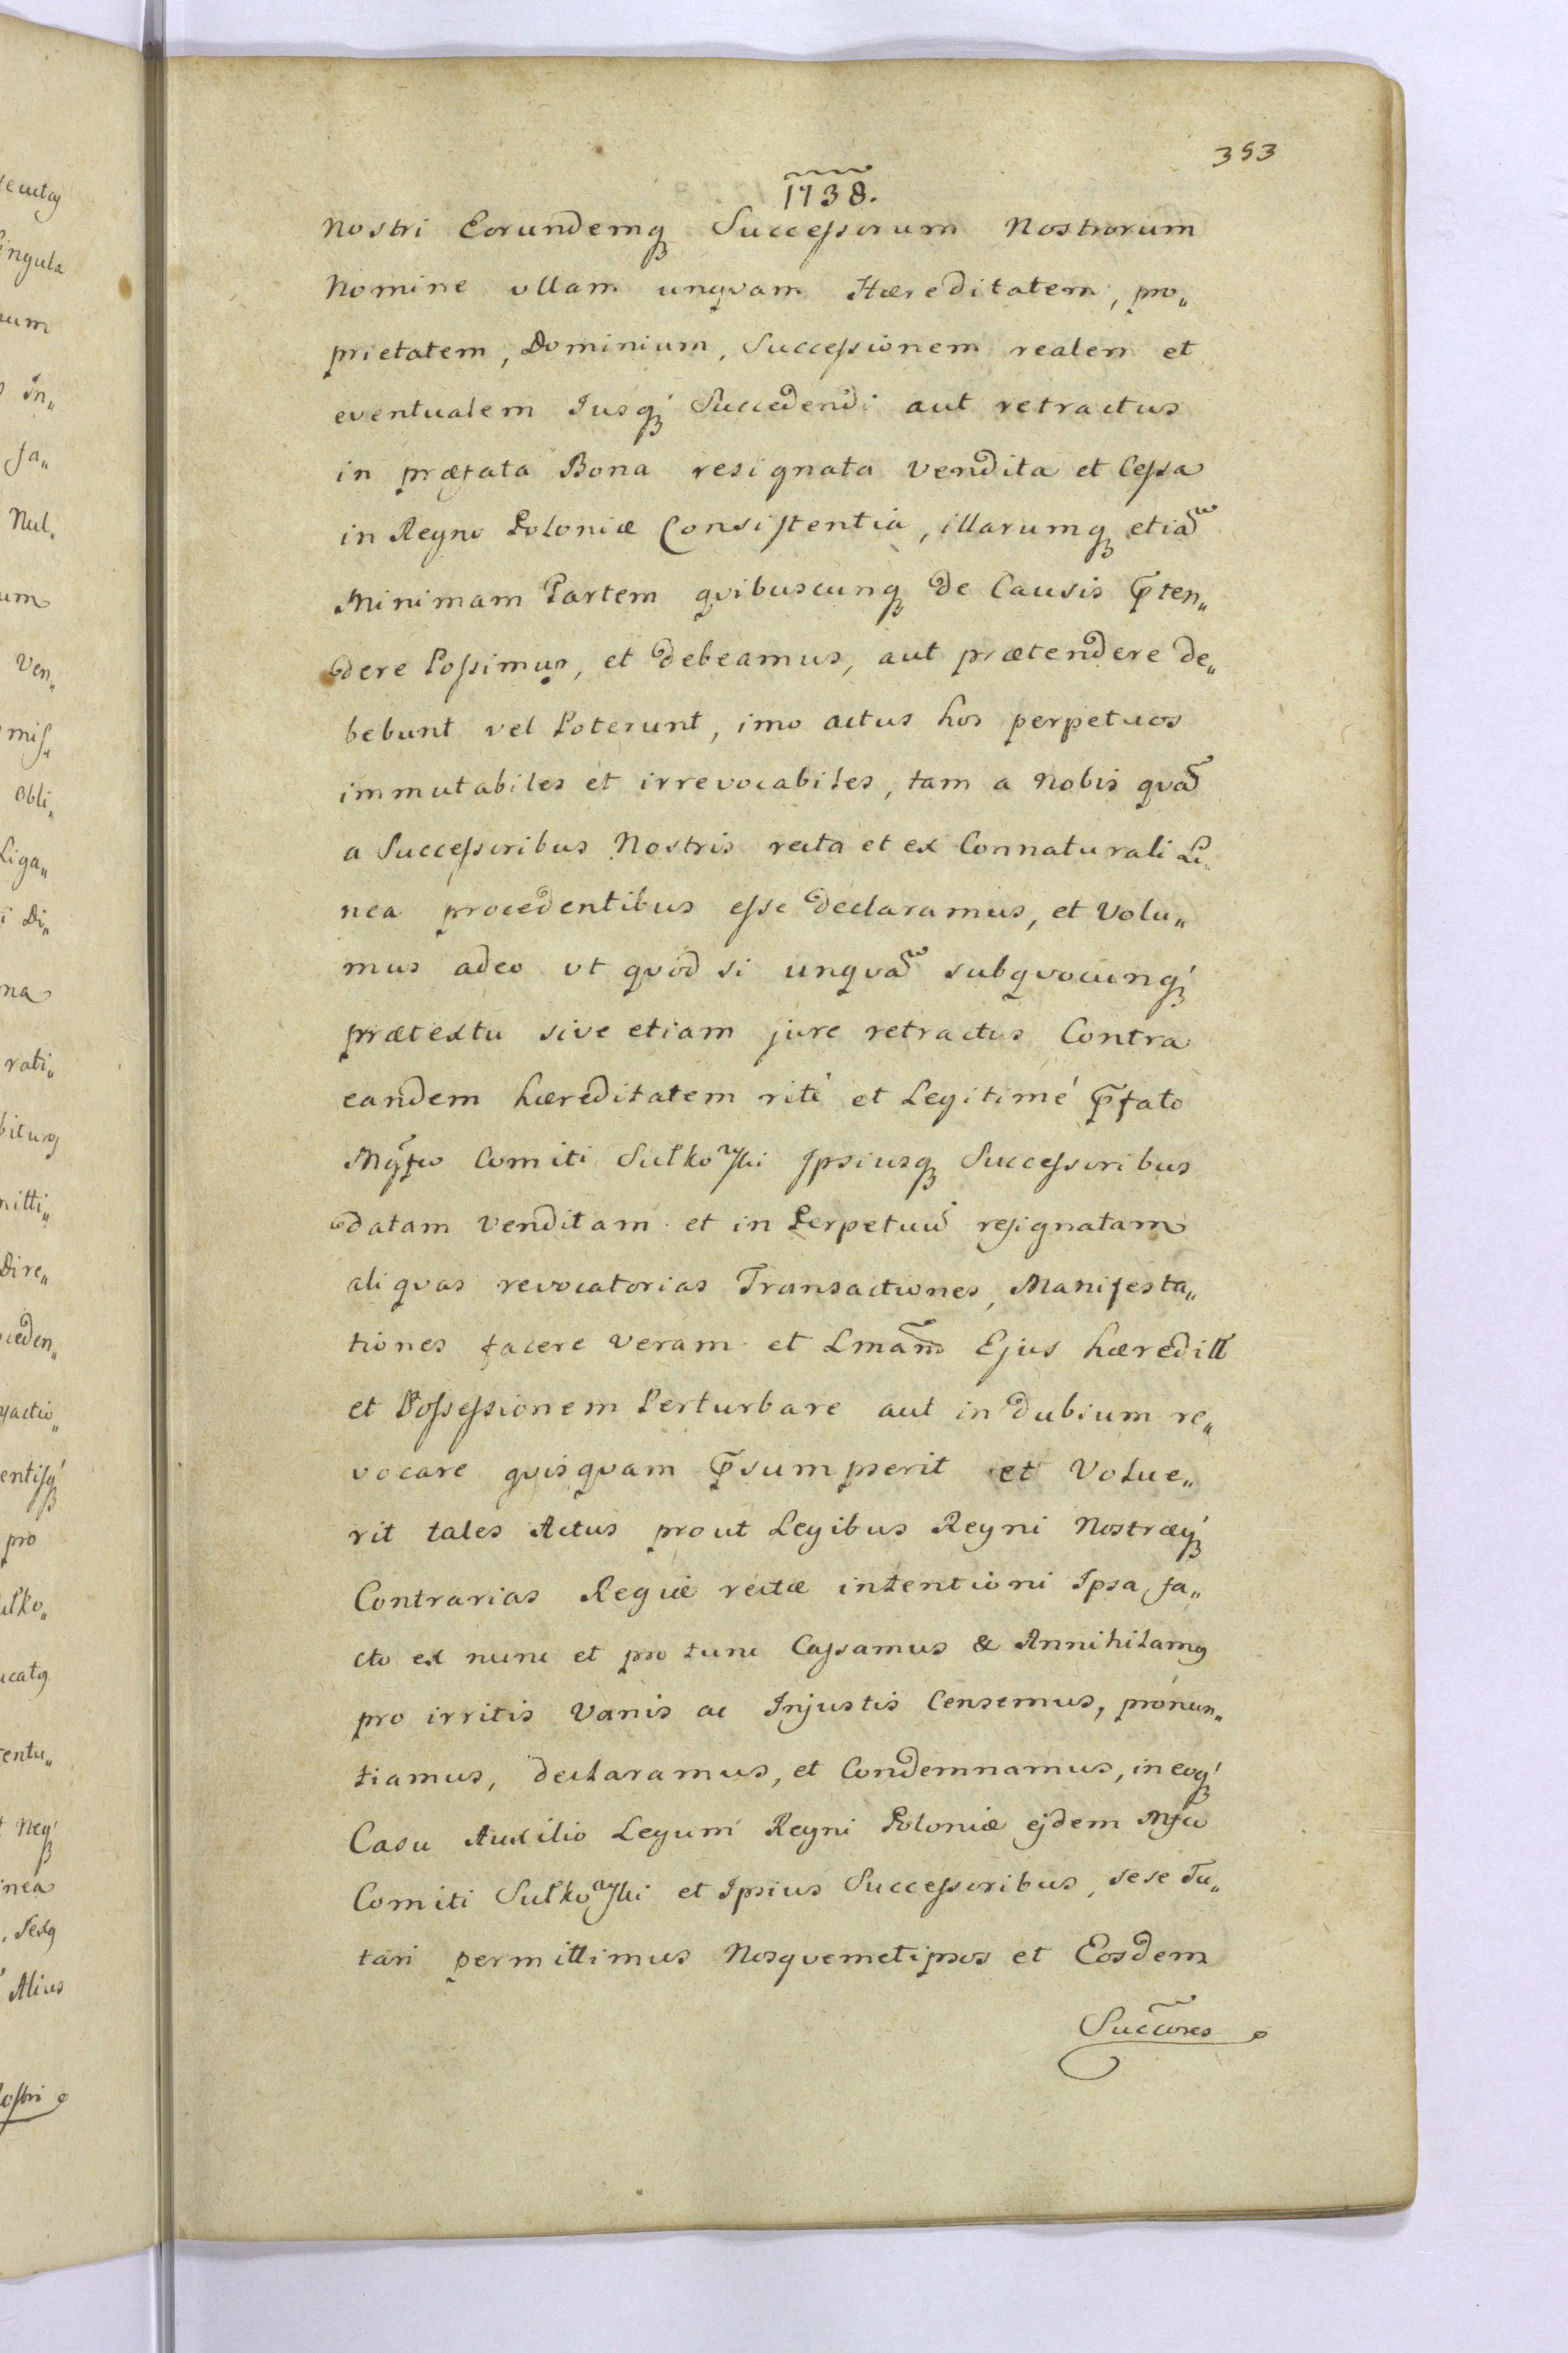 353
1738.
Nostri Eorundemq Successorum Nostrorum
Nomine ullam unqvam Hæreditatem, pro„
prietatem, Dominium, Successionem realem et
eventualem Jusq Succedendi aut retractus
in præfata Bona resignata vendita et Cessa
in Regno Poloniæ Consistentia, illarumq etiã
Minimam Partem qvibuscunq de Causis p̃ten„
dere Possimus, et debeamus, aut prætendere de„
bebunt vel Poterunt, imo actus hos perpetuos
immutabiles et irrevocabiles, tam a nobis qvã
a Successoribus Nostris recta et ex Connaturali Li„
nea procedentibus esse declaramus, et Volu„
mus adeo ut qvod si unqvã subqvocunq
prætextu sive etiam jure retractus Contra
eandem hæreditatem rité et Legitimé p̃fato
Mgfco Comiti Sułkowski Ipsiusq Successoribus
datam venditam et in Perpetuũ resignatam
aliqvas revocatorias Transactiones, Manifesta„
tiones facere veram et Lmãm Ejus hæreditt
et Possessionem Perturbare aut in dubium re„
vocare qvisqvam p̃sumpserit et Volue„
rit tales Actus prout Legibus Regni Nostræq
Contrarias Regiæ rectæ intentioni Ipsa fa„
cto ex nunc et pro tunc Cassamus & Annihilamq
pro irritis Vanis ac Injustis Censemus, pronun„
tiamus, declaramus, et Condemnamus, in eoq
Casu Auxilio Legum Regni Poloniæ ejdem Mfco
Comiti Sułkowski et Ipsius Successoribus, sese Tu„
tari permittimus Nosqvemetipsos et Eosdem
Succores